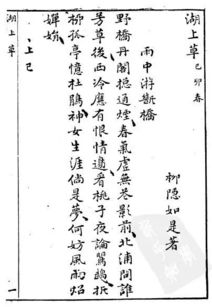 湖上草 己卯春
柳隱如是著
雨中游斷橋
野橋丹閣揔通煙春氣虛無花影前北浦問誰
芳草後西泠應有恨情邊看桃子夜論鴛鴦折
柳孤亭憶杜鵑神女生涯倘是夢何妨風雨炤
嬋娟
上巳
湖上草
一